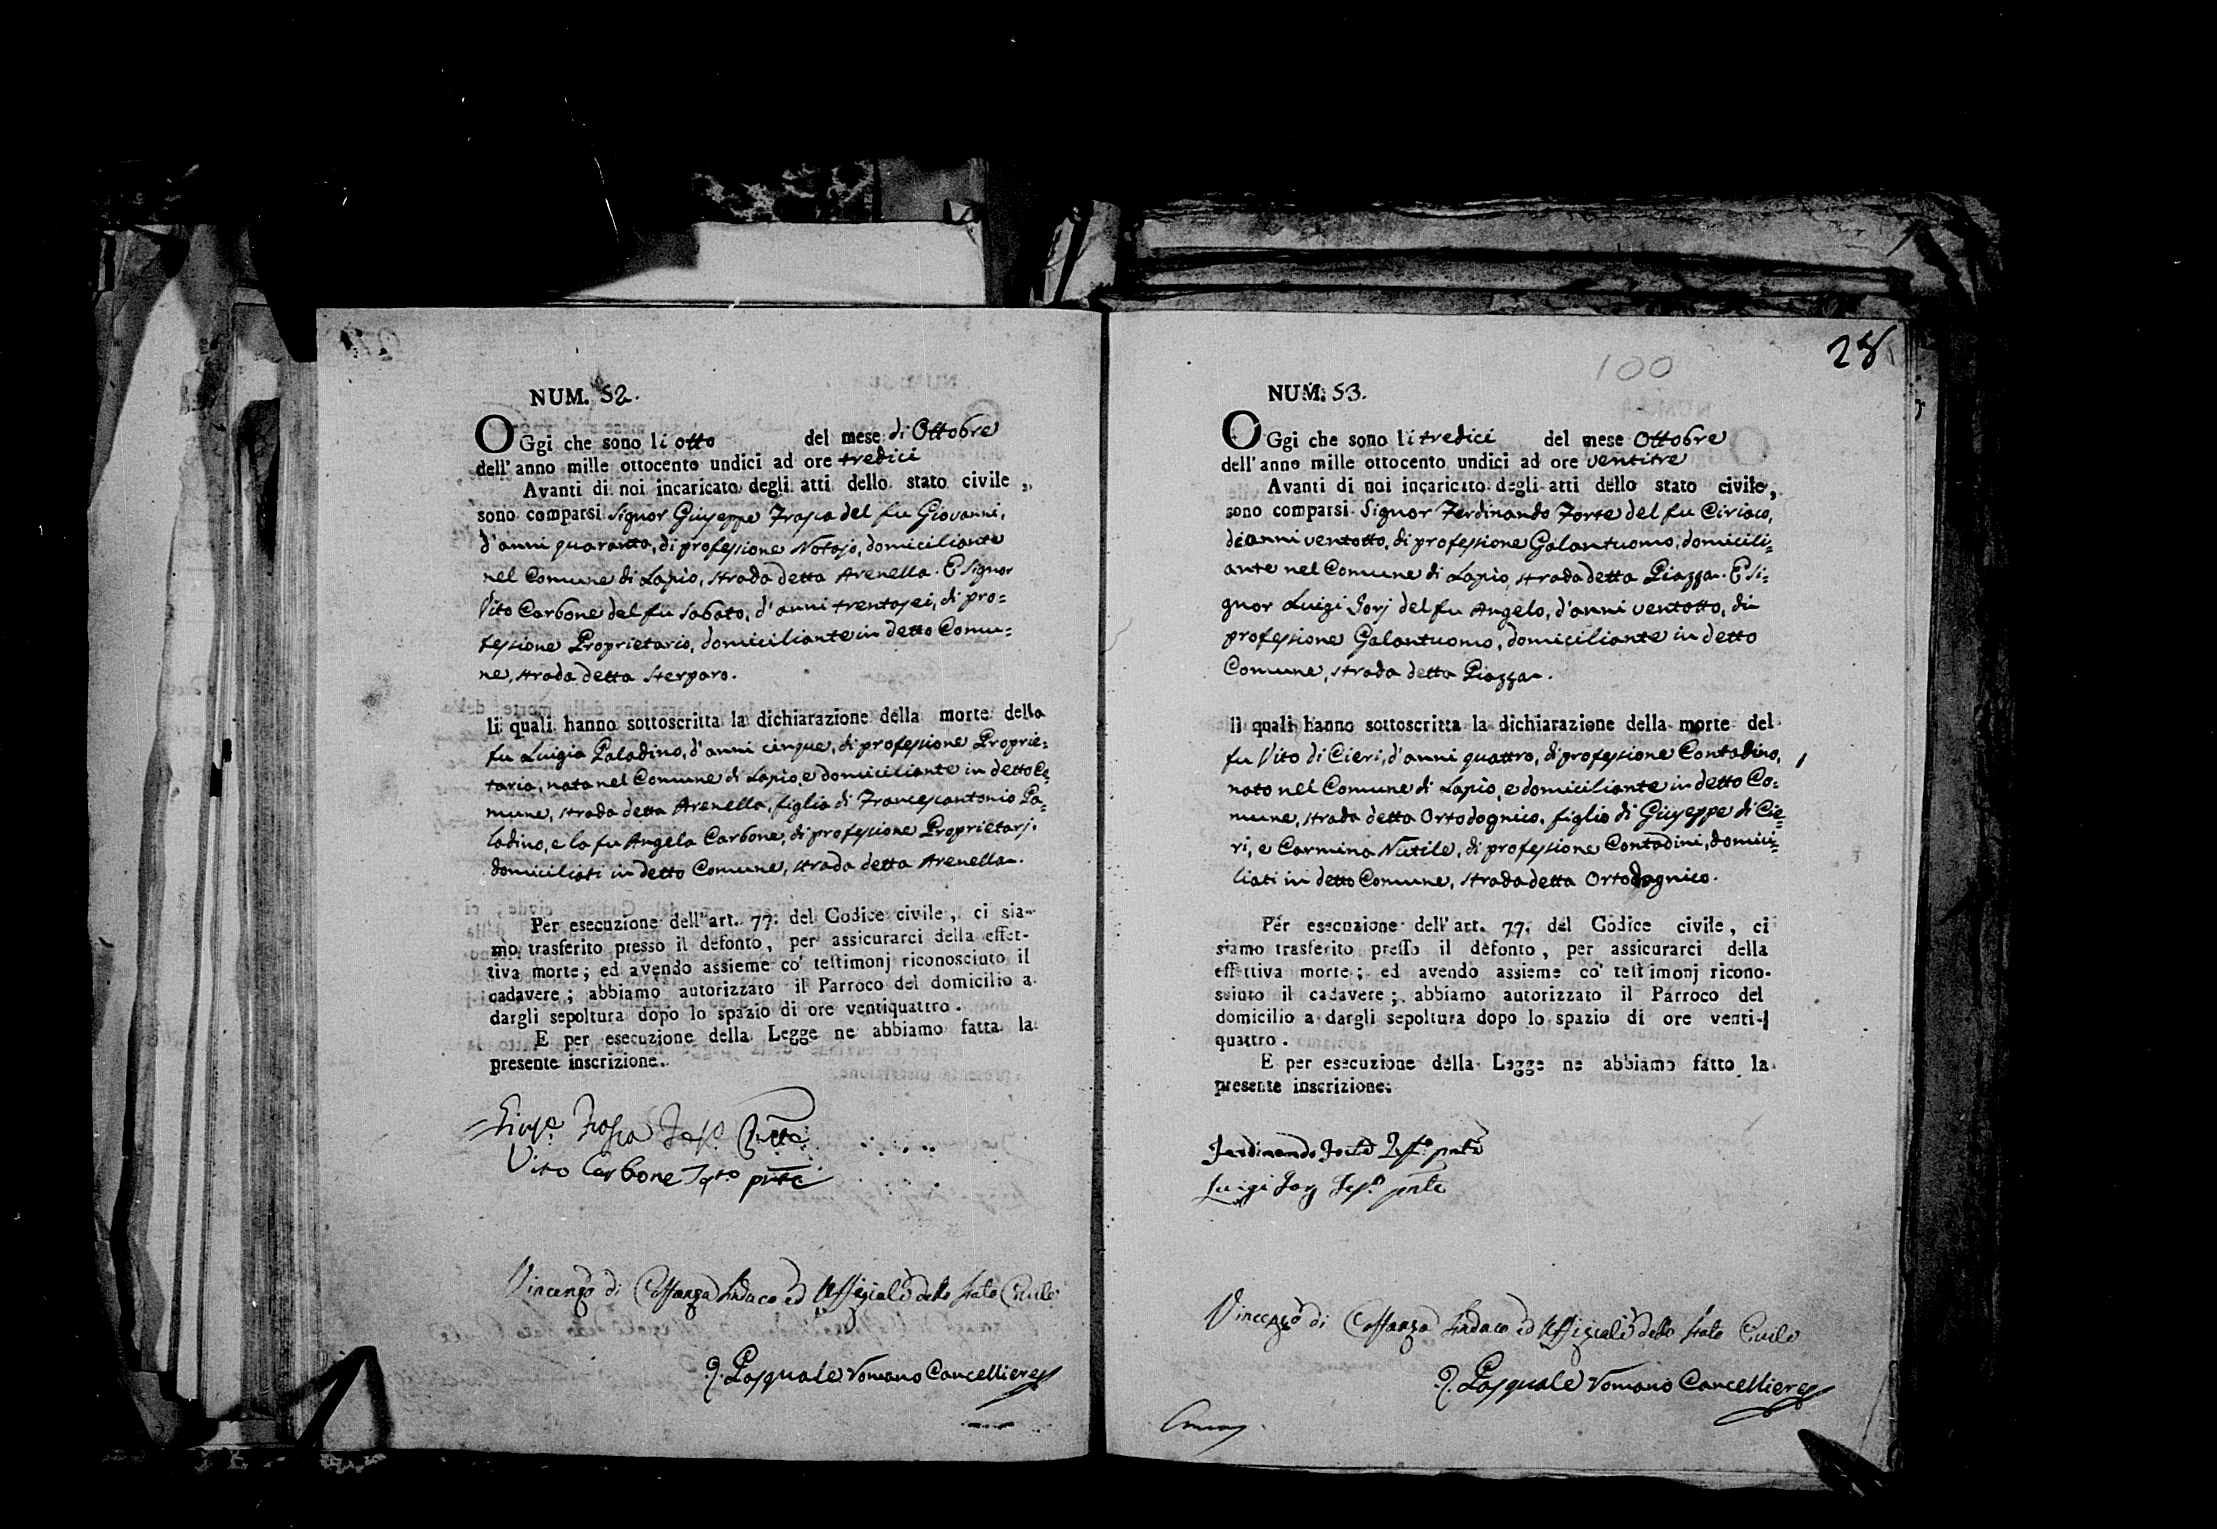 NUM. 52.
OGgi che sono li otto del mese di Ottobre
dell'anno mille ottocento undici ad ore tredici
Avanti di noi incaricato degli atti dello stato civile,
sono comparsi Signor Giuseppe Frasca del fu Giovanni,
d'anni quaranta, di professione Notajo, domiciliante
nel Comune di Lapio, strada detta Arenella. E Signor
Vito Carbone del fu Sabato, d'anni trentasei, di pro=
fessione Proprietario, domiciliante in detto Comu=
ne, strada detta Sterparo.
li quali hanno sottoscritta la dichiarazione della morte della
fu Luigia Paladino, d'anni cinque, di professione Proprie=
taria, nata nel Comune di Lapio, e domiciliante in detto Co=
mune, strada detta Arenella, figlia di Francescantonio Pa=
ladino, e la fu Angela Carbone, di professione Proprietarj.
domiciliati in detto Comune, strada detta Arenella.
Per esecuzione dell'art. 77. del Codice civile, ci sia-
mo trasferito presso il defonto, per assicurarci della effet-
tiva morte; ed avendo assieme co' testimonj riconosciuto il
cadavere; abbiamo autorizzato il Parroco del domicilio a
dargli sepoltura dopo lo spazio di ore ventiquattro.
E per esecuzione della Legge ne abbiamo fatta la
presente inscrizione.
Gius.e Frasca Tes.o
Vito Carbone Tes.to pnte
Vincenzo di Costanzo Sindaco ed Uffiziale dello Stato Civile
Pasquale Romano Cancelliere
28
100
NUM. 53.
OGgi che sono li tredici del mese Ottobre
dell'anno mille ottocento undici ad ore ventitre
Avanti di noi incaricato degli atti dello stato civile,
sono comparsi Signor Ferdinando Forte del fu Ciriaco,
di anni ventotto, di professione Galantuomo, domicili=
ante nel Comune di Lapio, strada detta Piazza. E Si=
gnor Luigi Forj del fu Angelo, d'anni ventotto, di
professione Galantuomo, domiciliante in detto
Comune, strada detta Piazza.
li quali hanno sottoscritta la dichiarazione della morte del
fu Vito di Cieri, d'anni quattro, di professione Contadino,
nato nel Comune di Lapio, e domiciliante in detto Co=
mune, strada detta Ortodognico. figlio di Giuseppe di Cie=
ri, e Carmina Nutile, di professione Contadini, domici=
liati in detto Comune, strada detta Ortodognico.
Per esecuzione dell'art. 77. del Codice civile, ci
siamo trasferito presso il defonto, per assicurarci della
effettiva morte; ed avendo assieme co' testimonj ricono-
sciuto il cadavere; abbiamo autorizzato il Parroco del
domicilio a dargli sepoltura dopo lo spazio di ore venti-
quattro.
E per esecuzione della Legge ne abbiamo fatto la
presente inscrizione.
Ferdinando Forte Tes.o pnte
Luigi Forj Tes.o pnte
Vincenzo di Costanzo Sindaco ed Uffiziale dello Stato Civile
Pasquale Romano Cancelliere